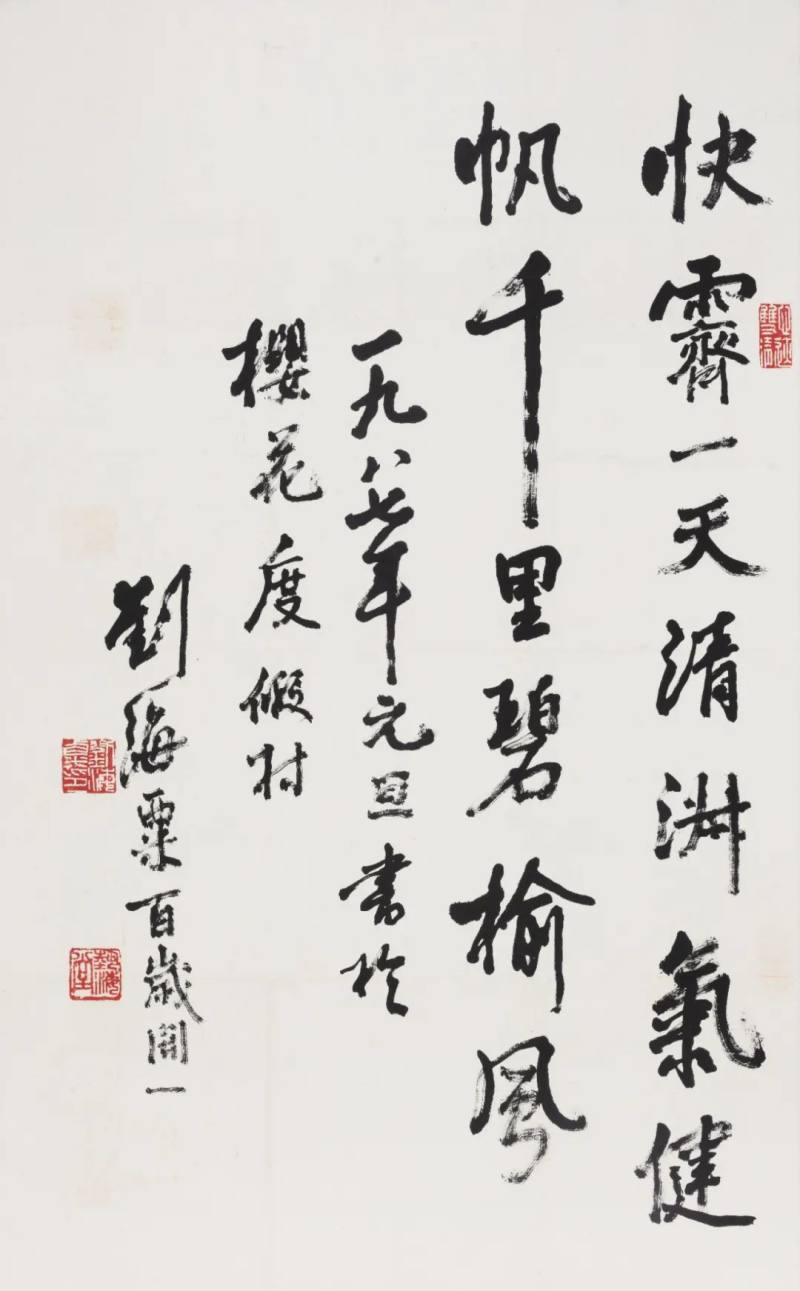 快霽一天清淑氣健
帆千里碧榆風
一九八七年元旦書於
櫻花度假村
劉海粟百歲開一